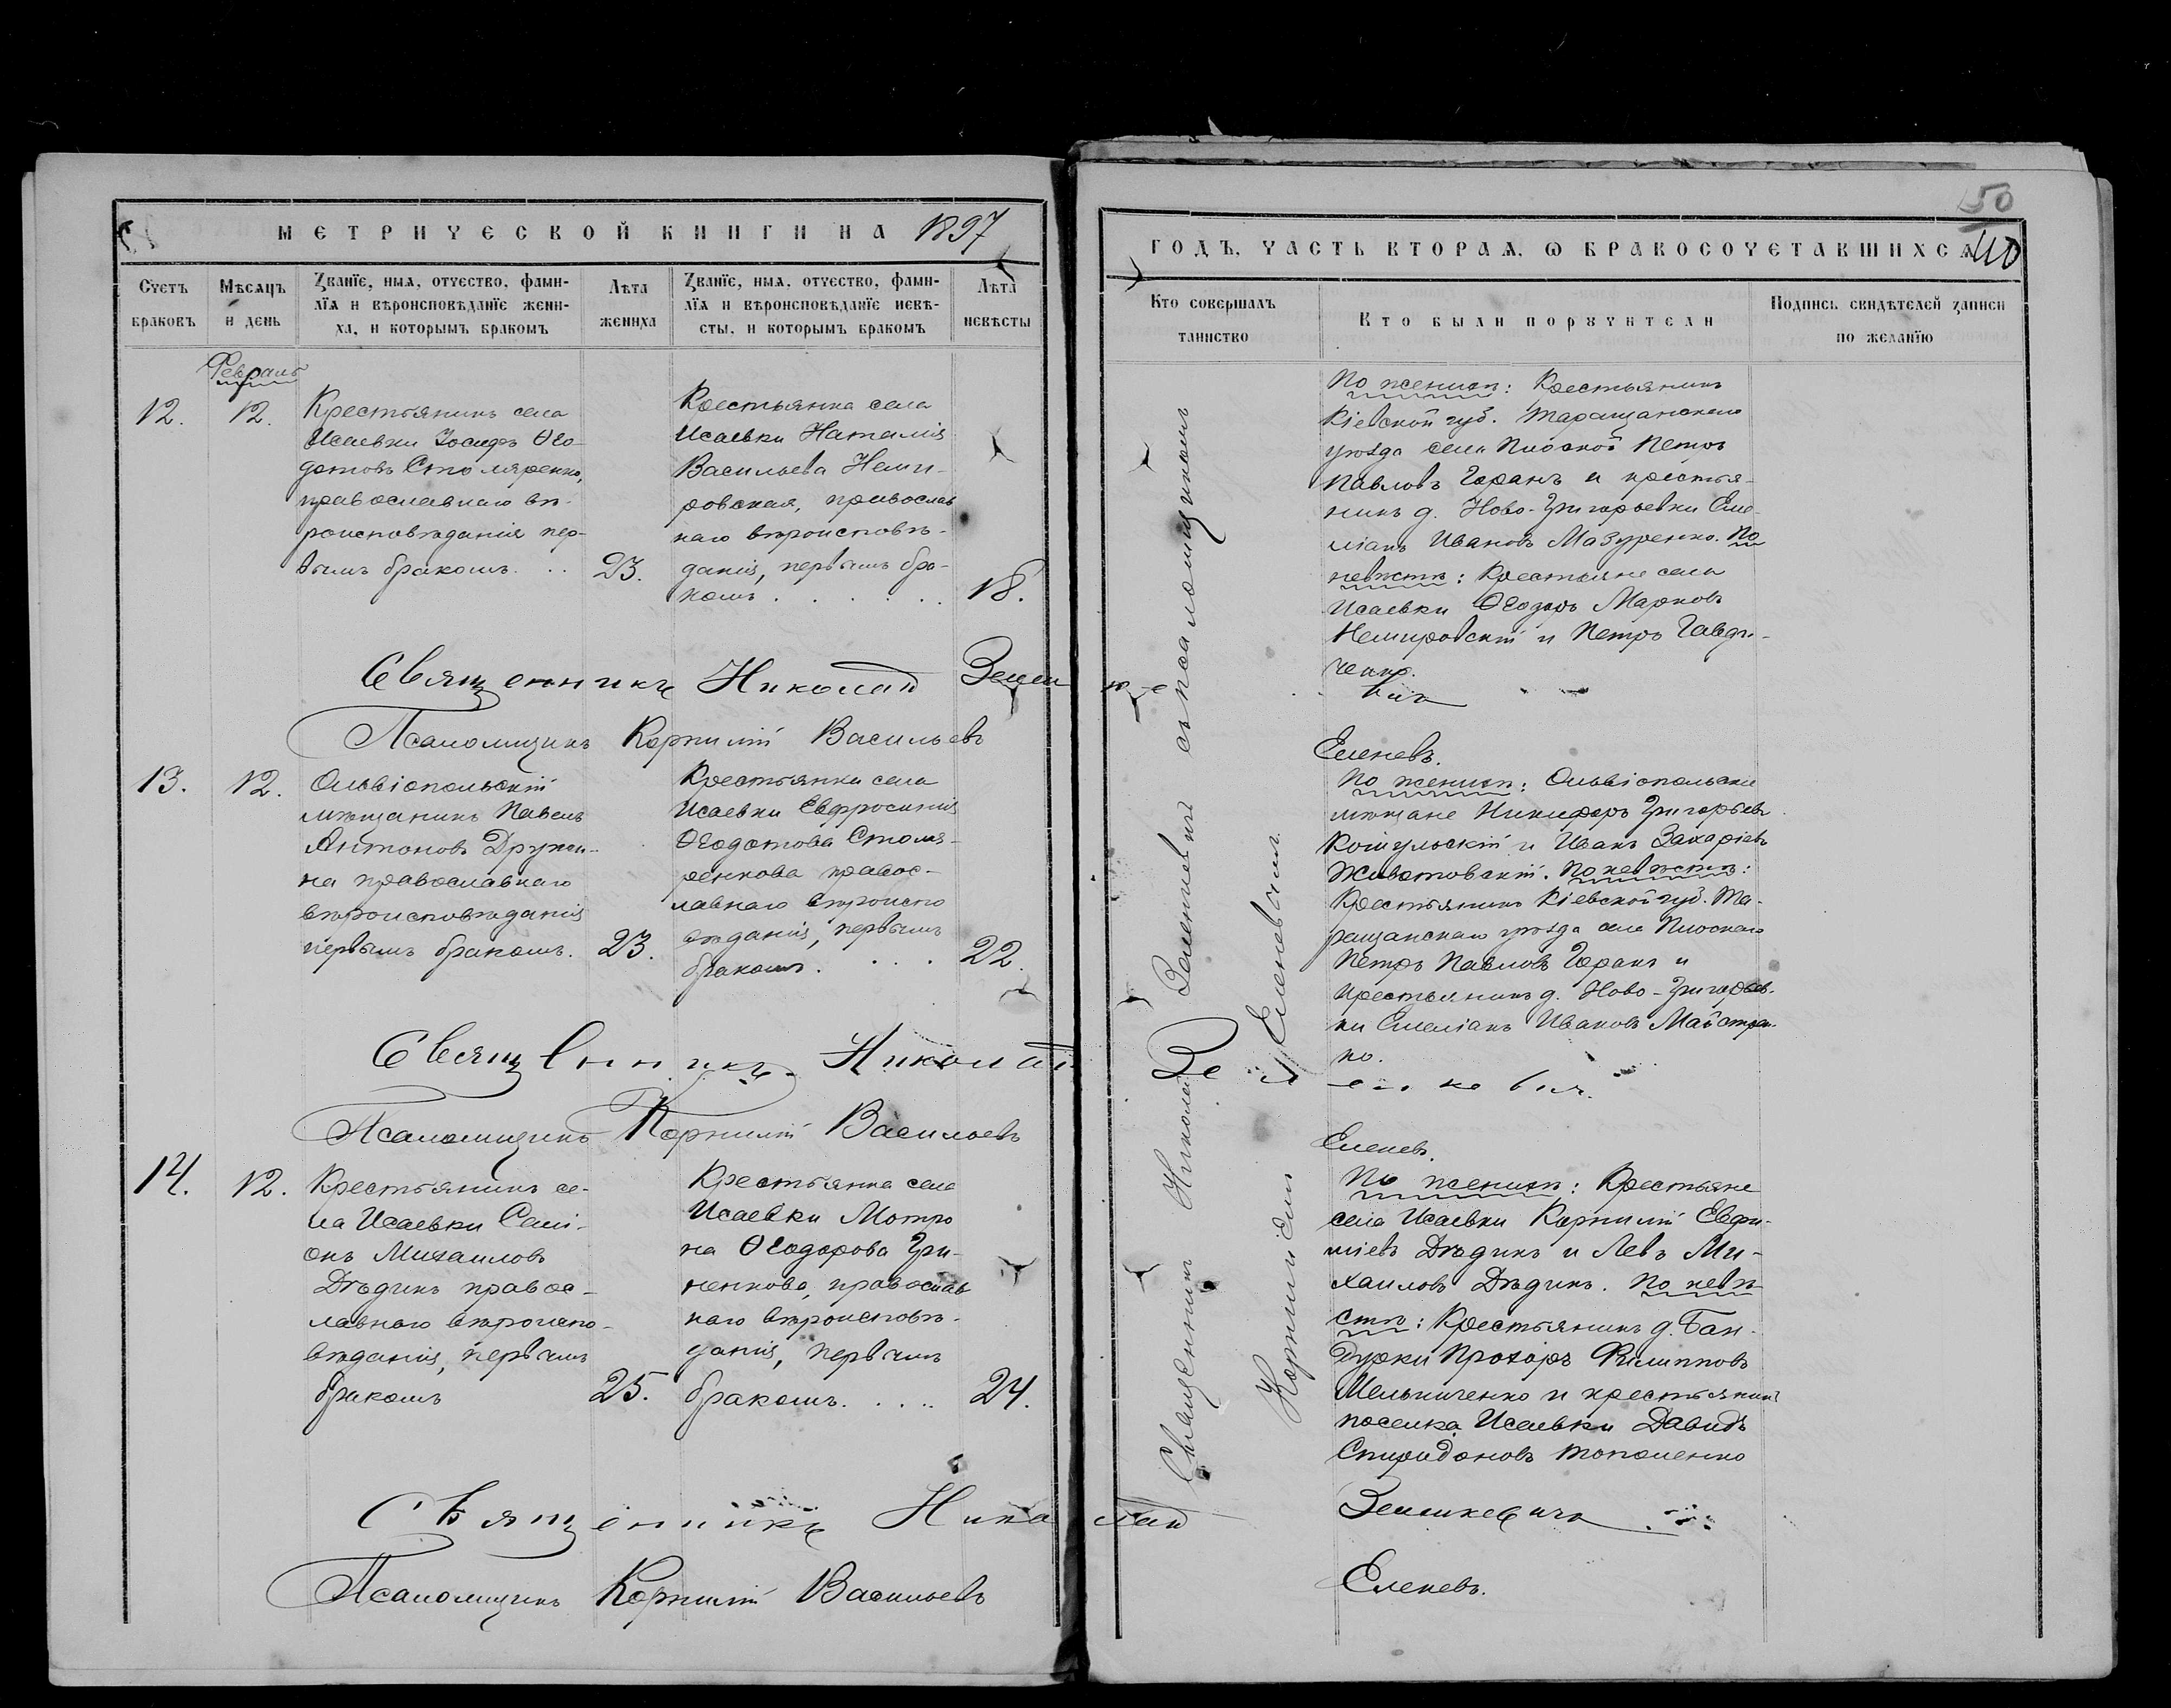 МЕТРИЧЕСКОЙ КНИГИ НА 1897
Счетъ браковъ
Мѣсяцъ и день
Званїе, имя, отчество, фами-
лїя и вѣроисповѣданїе жени-
ха, и которымъ бракомъ
Лѣта жениха
Званїе, имя, отчество, фами-
лїя и вѣроисповѣданїе невѣ-
сты, и которымъ бракомъ
Лѣта невѣсты
Февраль
12.
12.
Крестьянинъ села
Исаевки Іосифъ Ѳео-
дотовъ Столяренко,
православнаго вѣ-
роисповѣданія пер-
вымъ бракомъ. . .
23.
Крестьянка села
Исаевки Наталія
Васильева Неми-
ровская, православ
наго вѣроисповѣ-
данія, первымъ бра-
комъ . . . . . .
18.
Священникъ Николай Земл
Псаломщикъ Корнилій Васильевъ
13.
12.
Ольвіопольскій
мѣщанинъ Павелъ
Антоновъ Дружи-
на православнаго
вѣроисповѣданія
первымъ бракомъ.
23.
Крестьянка села
Исаевки Евфросинія
Ѳеодотова Столя-
ренкова правос-
лавнаго вѣроиспо
вѣданія, первымъ
бракомъ. . . .
22.
Священникъ Николай
Псаломщикъ Корнилій Васильевъ
14.
12.
Крестьянинъ се-
ла Исаевки Симе-
онъ Михаиловъ
Дѣдикъ правос-
лавнаго вѣроиспо-
вѣданія, первымъ
бракомъ
25.
Крестьянка села
Исаевки Мотро
на Ѳеодорова Гри-
ненкова, православ
наго вѣроисповѣ-
данія, первымъ
бракомъ. . . . .
24.
Священникъ Нико
Псаломщикъ Корнилій Васильевъ
50
40
ГОДЪ, ЧАСТЬ ВТОРАЯ, Ѡ БРАКОСОЧЕТАВШИХСЯ
Кто совершалъ
таинство
Кто были поручители
Подпись свидѣтелей записи
по желанїю
Священникъ Николай Зелинкевичъ съ псаломщикомъ
Корниліемъ Еленевымъ.
По женихѣ: Крестьянинъ
Кіевской губ. Таращанскаго
уѣзда села Плоской Петръ
Павловъ Горанъ и крестья-
нинъ д. Ново-Григорьевки Еме-
ліанъ Ивановъ Мазуренко. По
невѣстѣ: Крестьяне села
Исаевки Ѳеодоръ Марковъ
Немировскій и Петръ Гавди-
ченко.
Еленевъ.
По женихѣ: Ольвіопольскіе
мѣщане Никифоръ Григорьевъ
Кошульскій и Иванъ Захаріевъ
Животовскій. По невѣстѣ:
Крестьянинъ Кіевской губ. Та-
ращанскаго уѣзда села Плоскаго
Петръ Павловъ Горанъ и
крестьянинъ д. Ново-Григорьев-
ки Емеліанъ Ивановъ Майстрен-
ко.
Еленевъ.
По женихѣ: Крестьяне
села Исаевки Корнилій Евфи-
міевъ Дѣдикъ и Левъ Ми-
хаиловъ Дѣдикъ. По невѣ-
стѣ: Крестьянинъ д. Бан-
дурки Прохоръ Филипповъ
Мельниченко и крестьянинъ
поселка Исаевки Давидъ
Спиридоновъ Тополенко
лай Зелинкевичъ
Еленевъ.